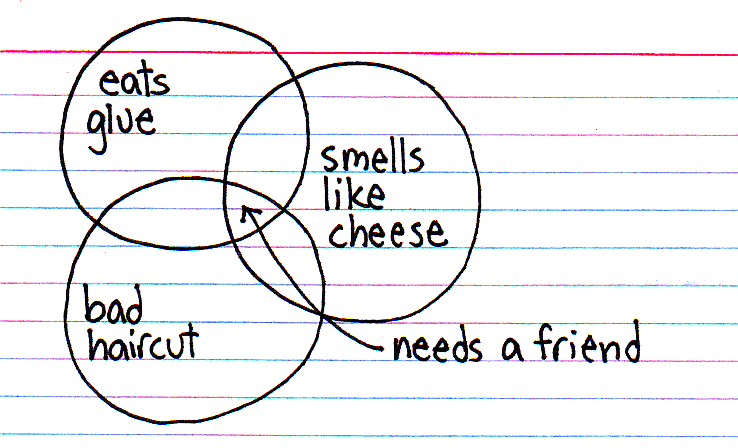 eats
glue
smells
like
cheese
bad
haircut
needs a friend